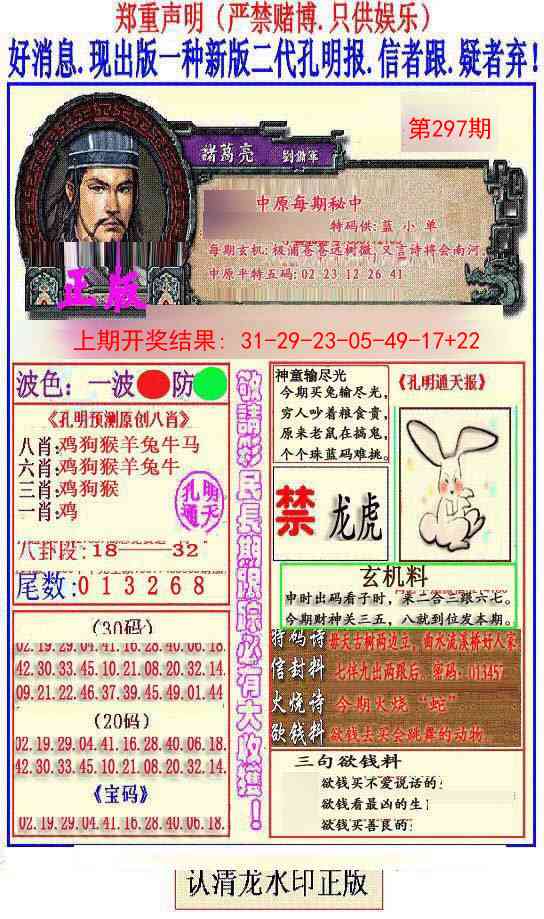 郑重声明（严禁赌博.只供娱乐）
好消息.现出版一种新版二代孔明报.信者跟.疑者弃！
第297期
諸葛亮 劉備軍
中原每期秘中
特码供:蓝 小 单
每期玄机:极浦苍苍远树微,又言诗将会南河.
中原平特五码:02 23 12 26 41
正版
上期开奖结果: 31-29-23-05-49-17+22
波色: 一波 防
《孔明预测原创八肖》
八肖:鸡狗猴羊兔牛马
六肖:鸡狗猴羊兔牛
三肖:鸡狗猴
一肖:鸡
孔明通天
八卦段:18——32
尾数:013268
(30码)
02.19.29.04.41.16.28.40.06.18.
42.30.33.45.10.21.08.20.32.14.
09.21.22.46.37.39.45.49.01.44
(20码)
02.19.29.04.41.16.28.40.06.18.
42.30.33.45.10.21.08.20.32.14.
《宝码》
02.19.29.04.41.16.28.40.06.18.
敬請彩民長期跟踪必有大收獲！
神童输尽光
今期买兔输尽光,
穷人吵着粮食贵,
原来老鼠在搞鬼,
个个珠蓝码难挑。
《孔明通天报》
禁 龙虎
玄机料
申时出码看子时，来二合三跟六七。
今期财神关三五，八就到位发本期。
特码诗 毋天古树两边立，曲水流溪桥好人家
信封料 七伴九出两跟后. 密码: 013457
火烧诗 今期火烧“蛇”
欲钱料 欲钱去买会跳舞的动物。
三句欲钱料
欲钱买不爱说话的:
欲钱看最凶的生
欲钱买善良的:
认清龙水印正版